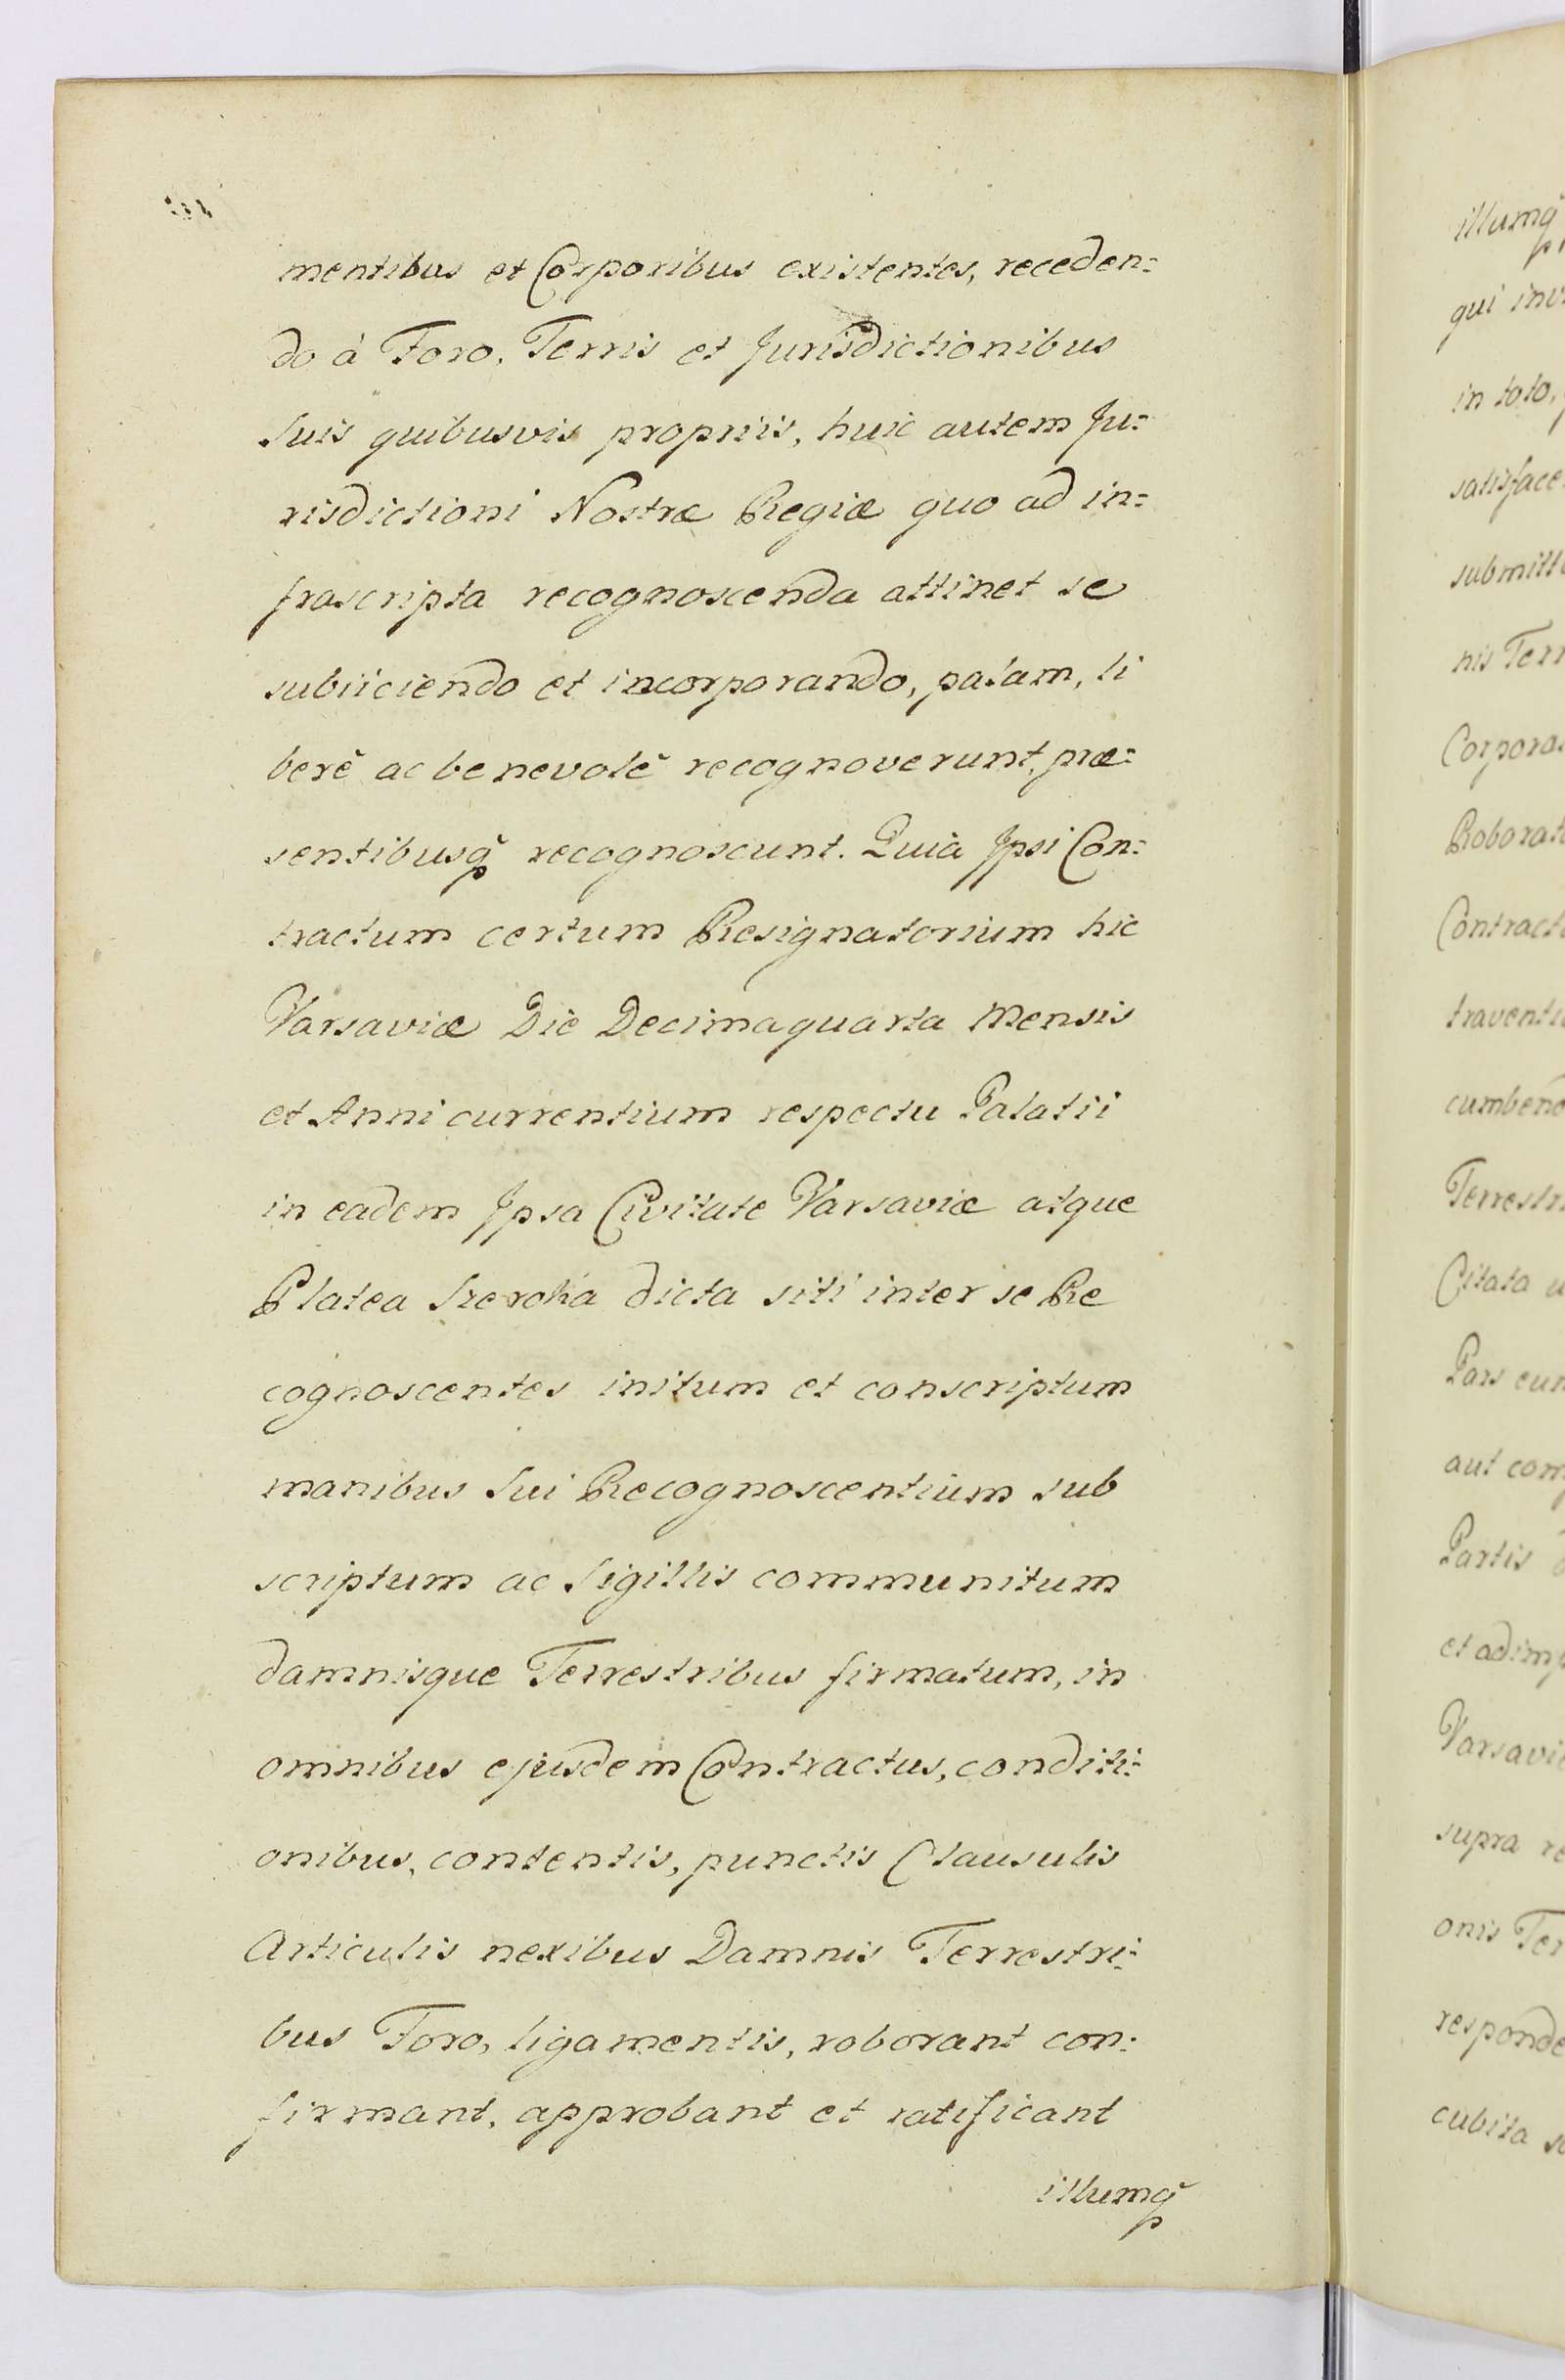 mentibus et Corporibus existentes, receden=
do à Foro, Terris et Jurisdictionibus
Suis quibusvis propriis, huic autem Ju=
risdictioni Nostræ Regiæ quo ad in=
frascripta recognoscenda attinet se
subiiciendo et incorporando, palam, li
berè ac benevolè recognoverunt, præ=
sentibusq̃ recognoscunt. Quia Ipsi Con=
tractum certum Resignatorium hic
Varsaviæ Die Decimaquarta Mensis
et Anni currentium respectu Palatii
in eadem Ipsa Civitate Varsaviæ atque
Platea Szeroka dicta siti inter se Re
cognoscentes initum et conscriptum
manibus Sui Recognoscentium sub
scriptum ac Sigillis communitum
damnisque Terrestribus firmatum, in
omnibus ejusdem Contractus, conditi=
onibus, contentis, punctis Clausulis
Articulis nexibus Damnis Terrestri=
bus Foro, ligamentis, roborant con=
firmant, approbant et ratificant
illumq̃
illumq̃
qui inv
in toto,
satisface
submitt
nis Terr
Corpora
Roborat
Contract
traventi
cumben
Terrestr
Citata
Pars eun
aut com
Partis
et adimp
Varsavi
supra re
onis Ter
responde
cubita s